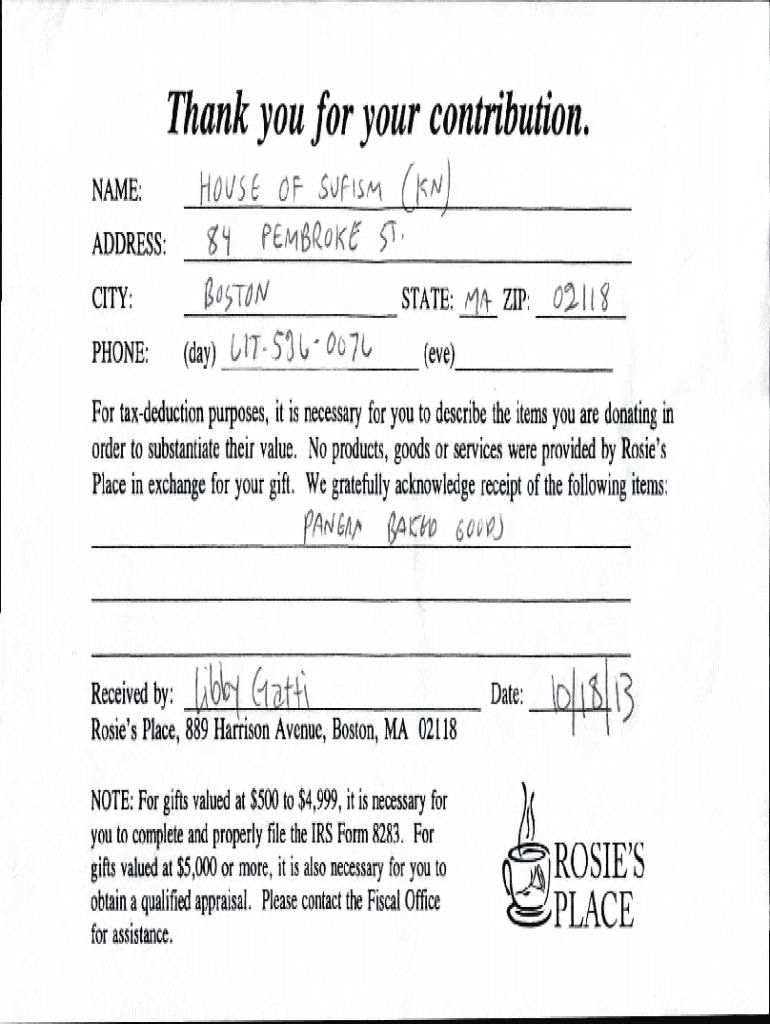 Thank you for your contribution.
NAME: HOUSE OF SUFISM (KN)
ADDRESS: 84 PEMBROKE ST.
CITY: BOSTON STATE: MA ZIP: 02118
PHONE: (day) (eve)
For tax-deduction purposes, it is necessary for you to describe the items you are donating in
order to substantiate their value. No products, goods or services were provided by Rosie's
Place in exchange for your gift. We gratefully acknowledge receipt of the following items:
BAKED GOODS
Received by: Libby Gatti Date: 10/18/13
Rosie's Place, 889 Harrison Avenue, Boston, MA 02118
NOTE: For gifts valued at $500 to $4,999, it is necessary for
you to complete and properly file the IRS Form 8283. For
gifts valued at $5,000 or more, it is also necessary for you to
obtain a qualified appraisal. Please contact the Fiscal Office
for assistance.
ROSIE'S
PLACE